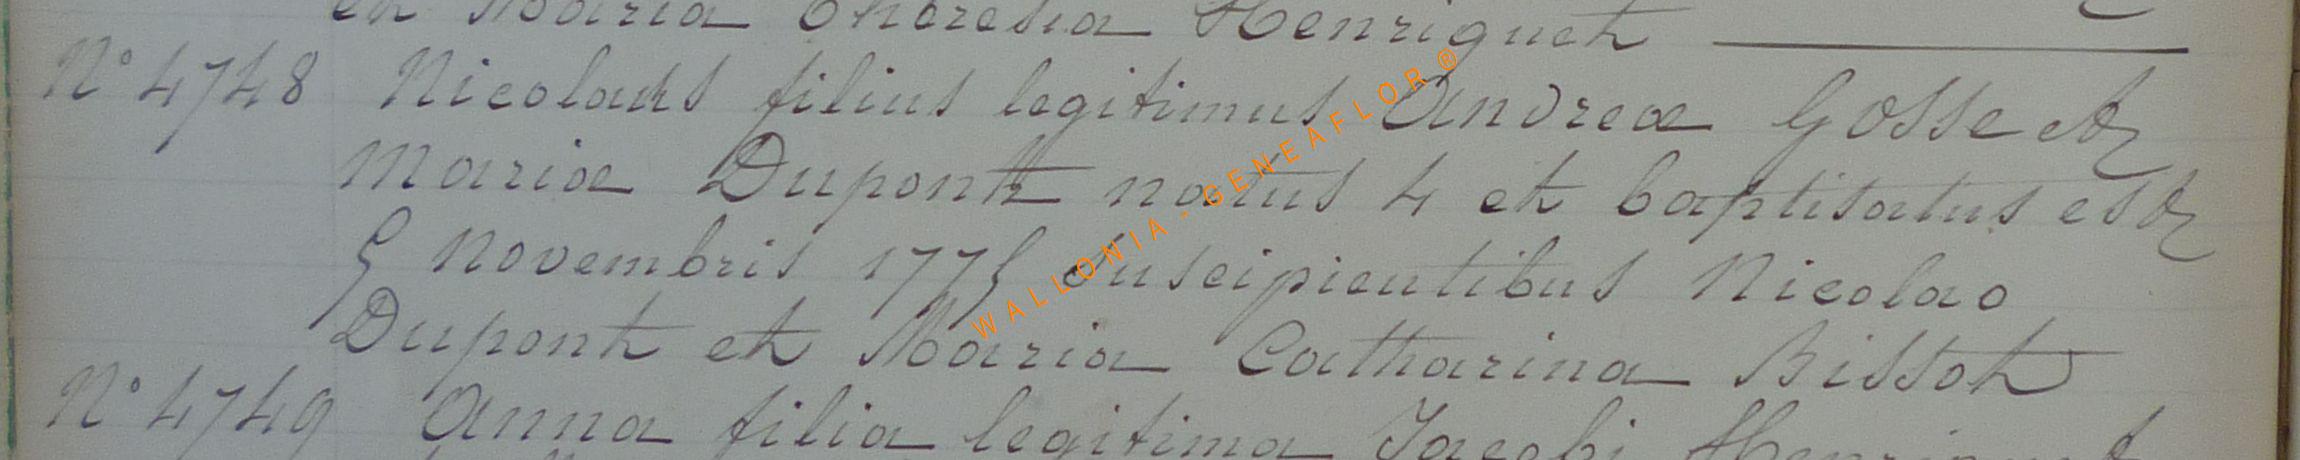 et Maria Theresia Henriquet
N° 4748 Nicolaus filius legitimus Andreæ Gosse et
Mariæ Dupont natus 4 et baptisatus est
5 Novembris 1775 Suscipientibus Nicolao
Dupont et Maria Catharina Bissot
N° 4749 Anna filia legitima Jacobi Henriquet
WALLONIA - GENEAFLOR ®